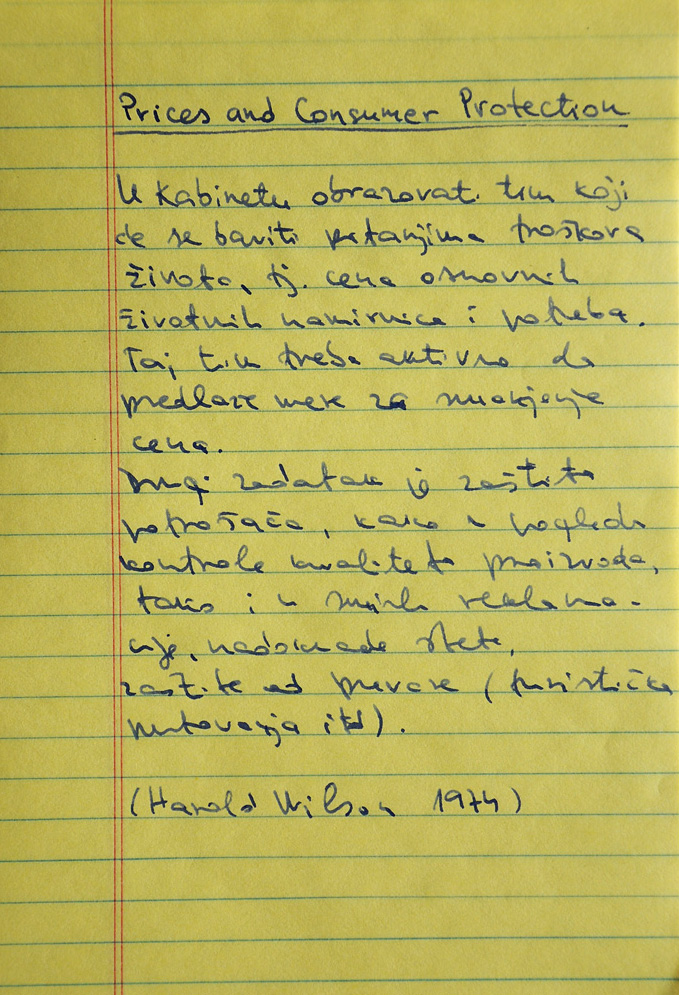 Prices and Consumer Protection
U kabinetu obrazovati tim koji
će se baviti pitanjima troškova
života, tj. cena osnovnih
životnih namirnica i potreba.
Taj tim treba aktivno da
predlaže mere za smanjenje
cena.
Drugi zadatak je zaštita
potrošača, kako u pogledu
kontrole kvaliteta proizvoda,
tako i u reklama-
cije, nadoknade štete,
zaštite od prevare (turistička
putovanja itd).
(Harold Wilson 1974)